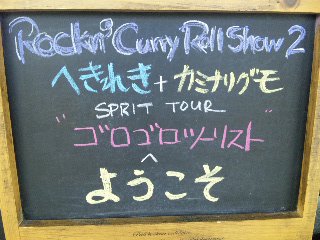 Rockn' Curry Roll Show 2
へきれき+カミナリグモ
SPRIT TOUR
"ゴロゴロツーリスト"
へ
ようこそ